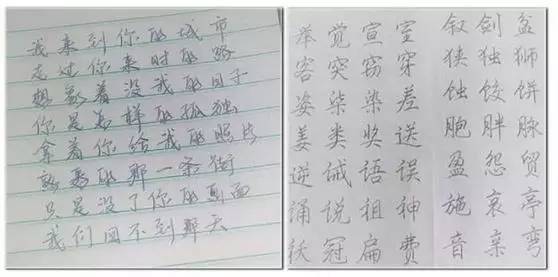 我来到你的城市
走过你来时的路
想象着没我的日子
你是怎样的孤独
拿着你给我的照片
熟悉的那一条街
只是没了你的画面
我们回不到那天
举 觉 宣 室 剑 盆
容 突 窃 穿 狭 独 狮
姿 柒 染 差 蚀 饺 饼
姜 类 奖 送 胞 胖 脉
逆 诫 语 误 盈 怨 贸
诵 说 祖 神 施 哀 亭
袄 冠 扁 费 音 亲 弯